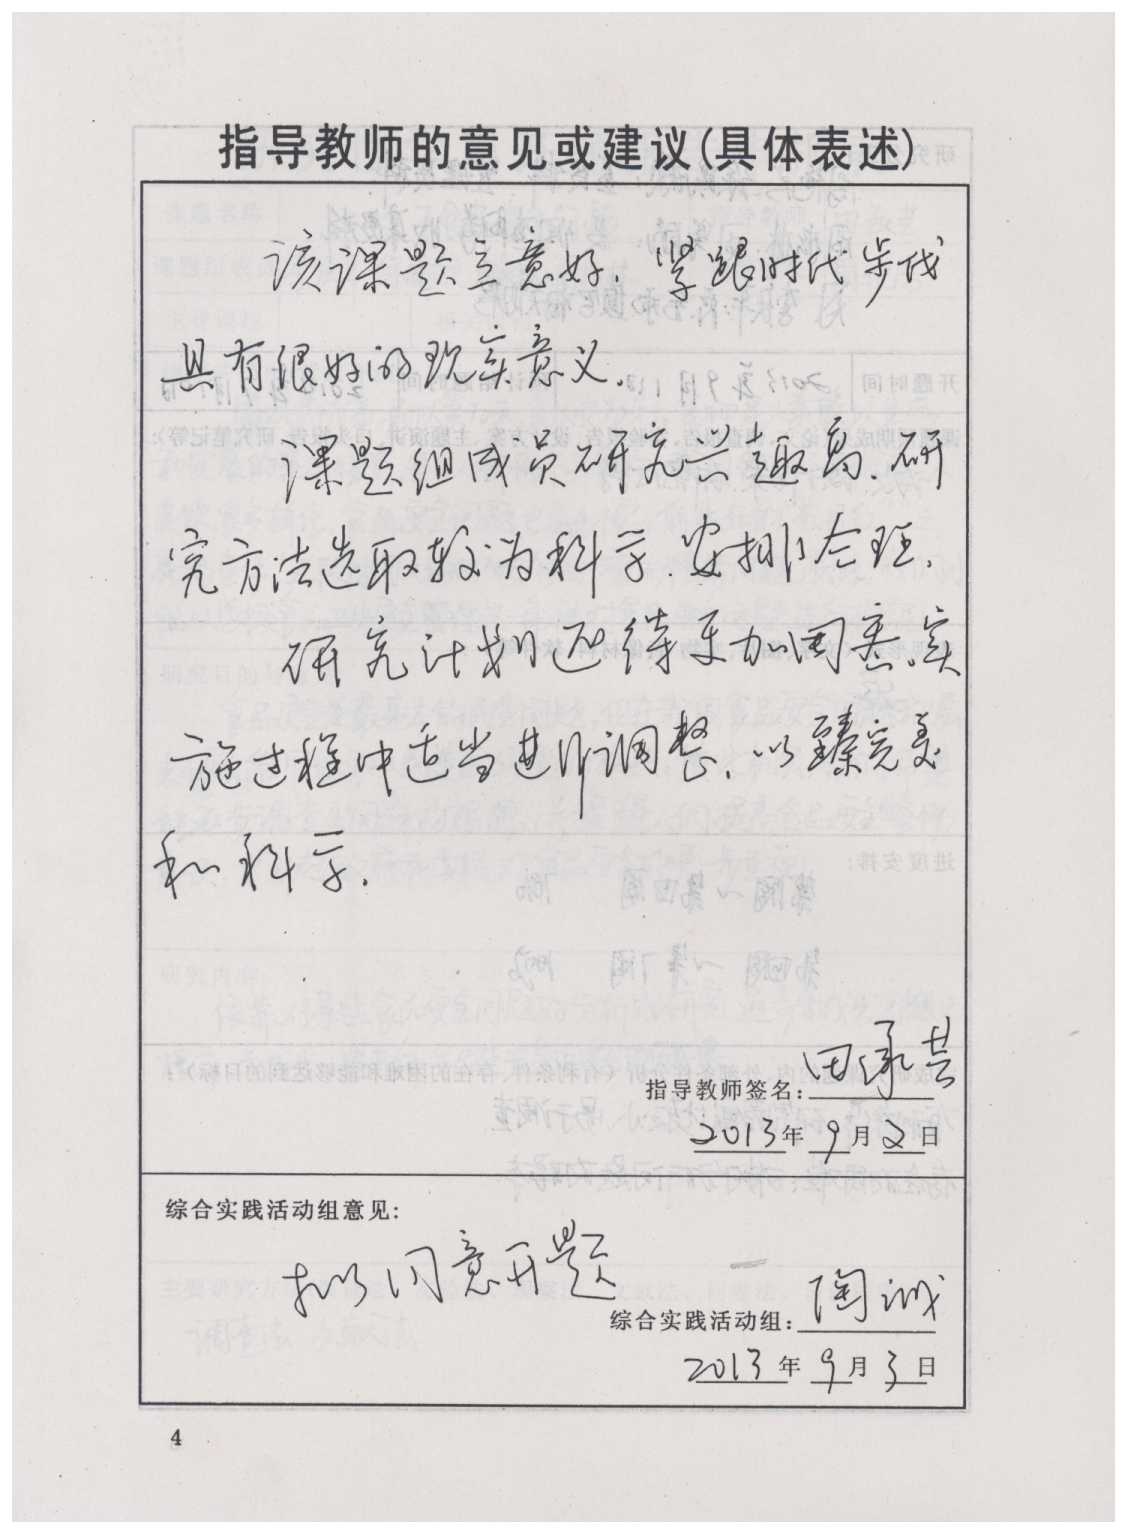 指导教师的意见或建议(具体表述)
该课题立意好.紧跟时代步伐
具有很好的现实意义.
课题组成员研究兴趣高.研
究方法选取较为科学.安排合理.
研究计划还待更加周悉.实
施过程中适当进行调整.以臻完美
和科学.
指导教师签名:田承芸
2013年9月2日
综合实践活动组意见:
拟同意开题
综合实践活动组:陶诚
2013年9月3日
4